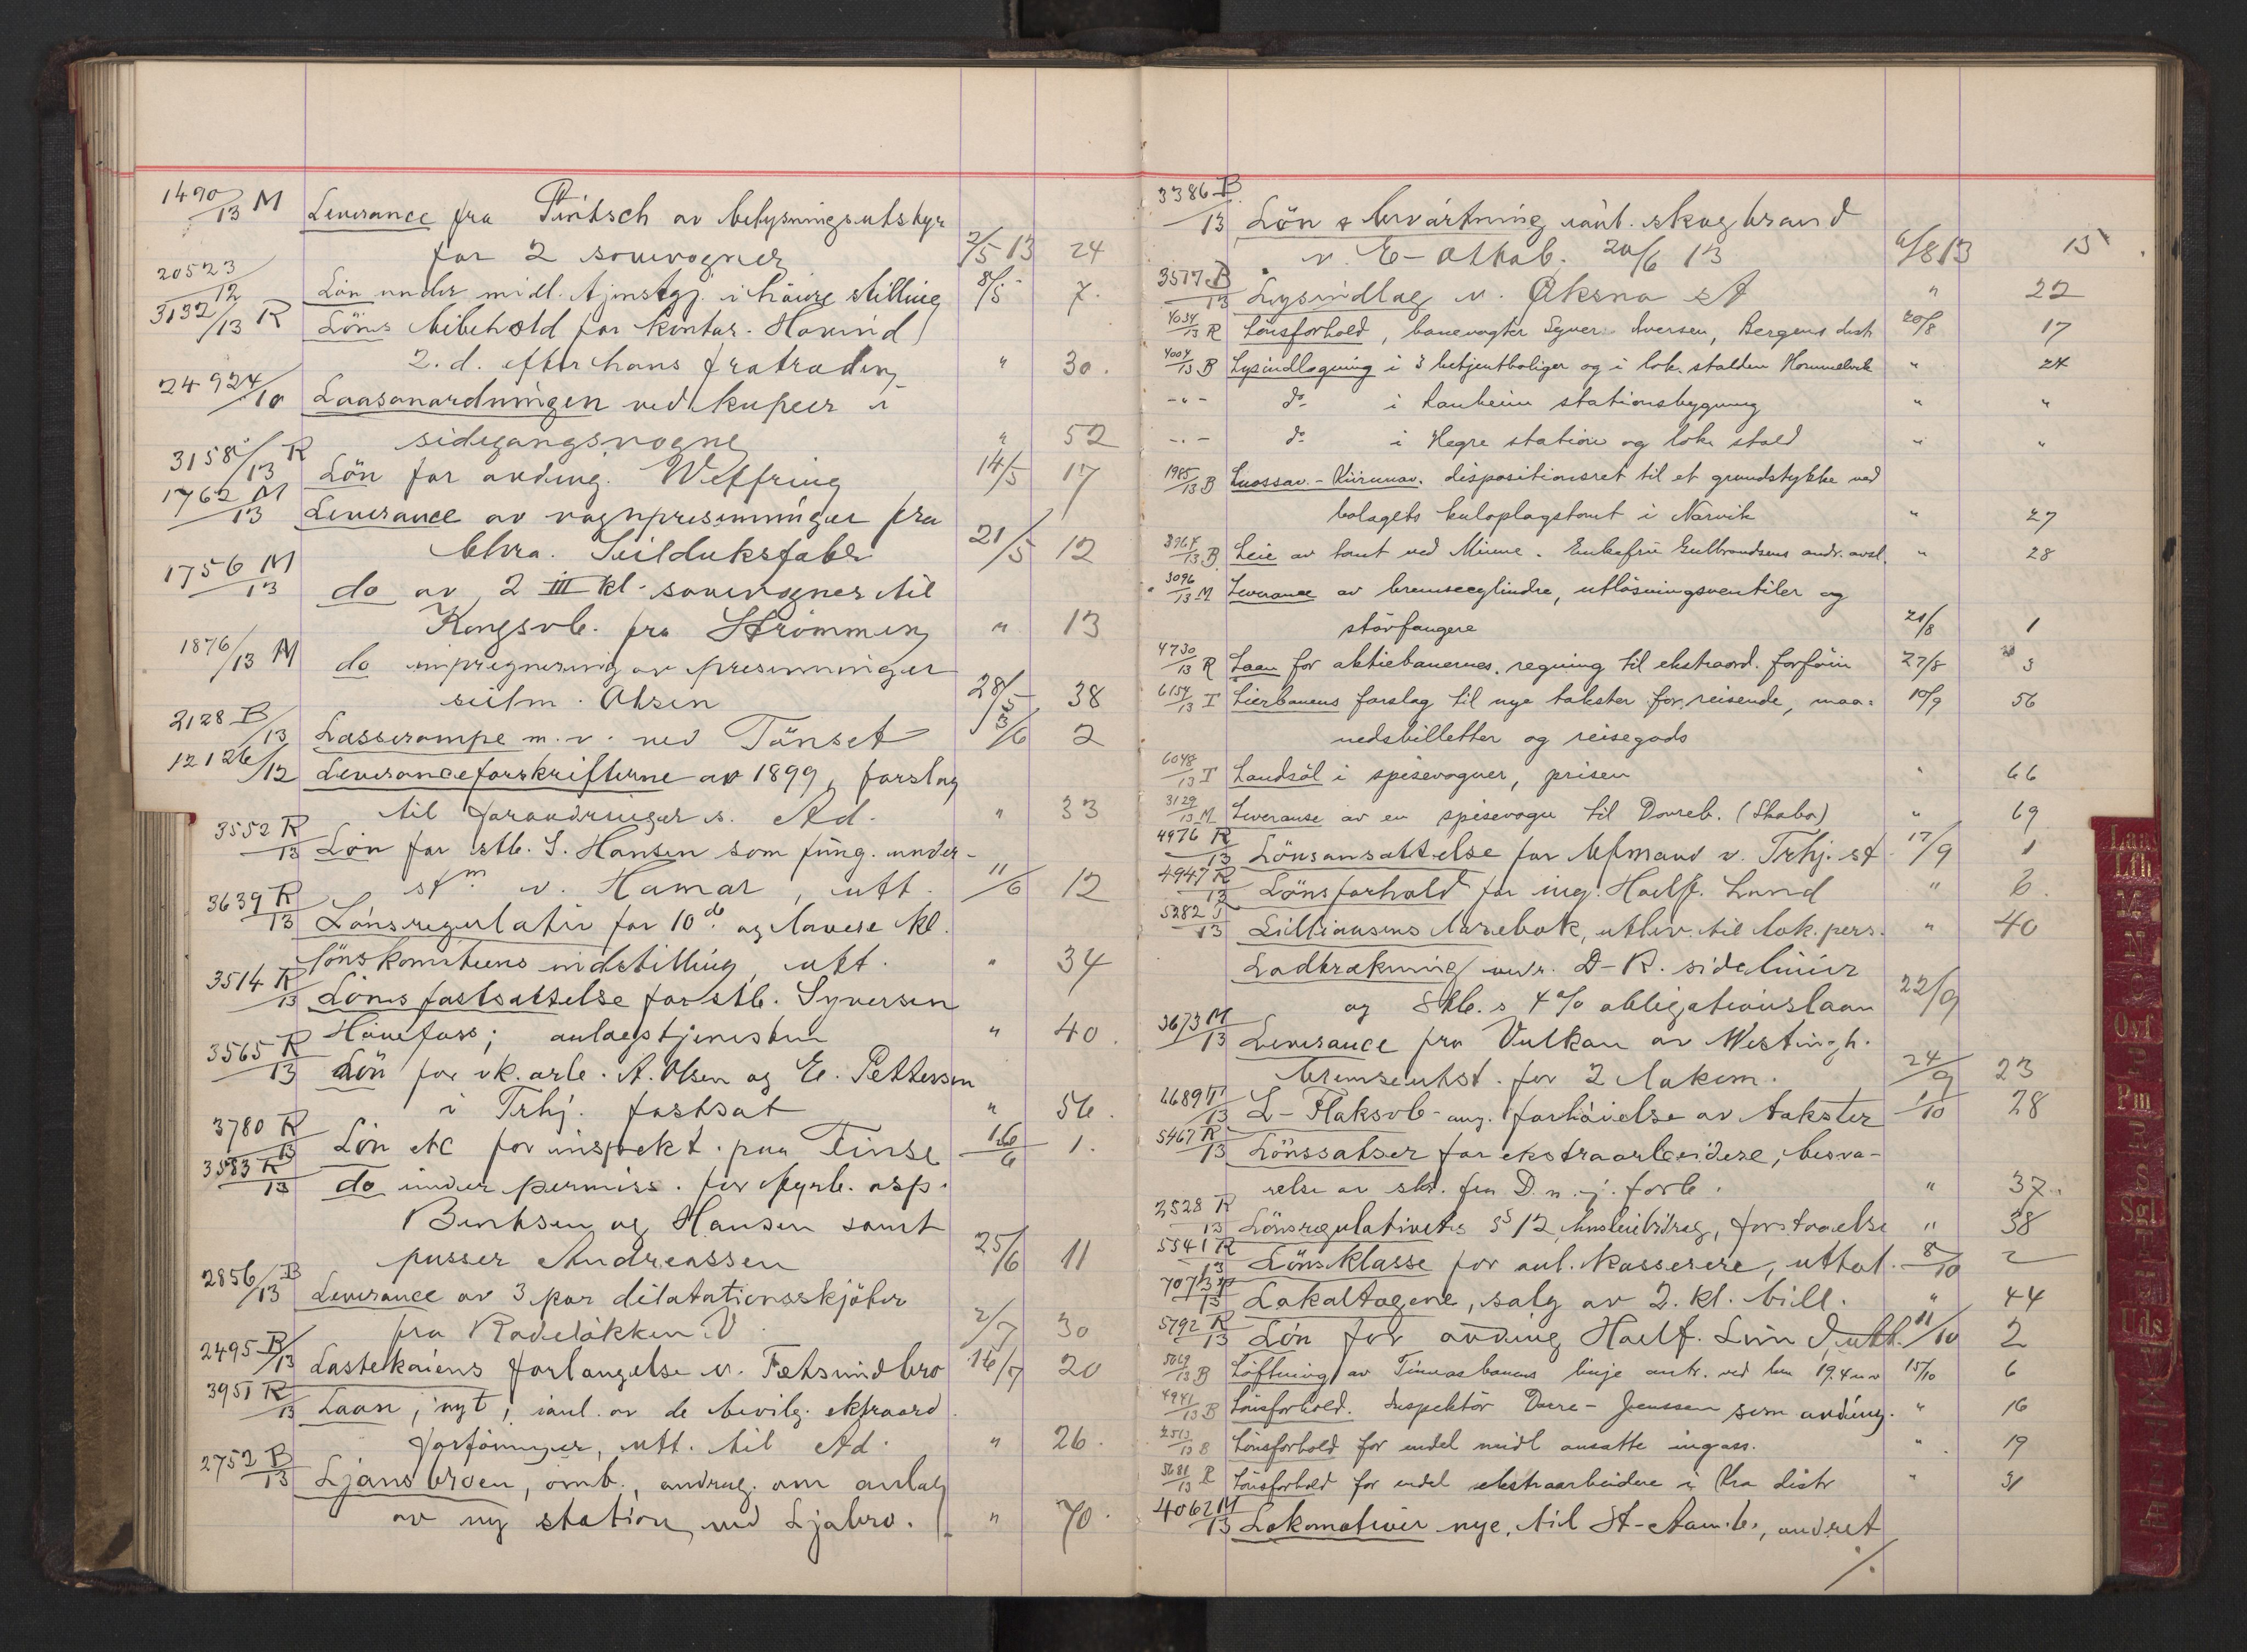 1490/13 M Leverance fra Pintsch av belysningsutstyr
for 2 sovevogner 2/5 13 24
20523/12 Lön under midl. tjenstgj. i höiere stilling 8/5 7.
3132/13 R Löns bibehold for kontor. Havind
2. d. efter hans fratræden " 30.
24924/10 Laasanordningen ved kupeer i
sidegangsvogne " 52
3158/13 R Lön for avding. Weffring 14/5 17
1762/13 M Leverance av vognpresenninger fra
Chra. Seilduksfabr 21/5 12
1756/13 M do av 2 III kl. sovevogner til
Kongsvb. fra Strömmen " 13
1876/13 M do impregnering av presenninger
seilm. Olsen 28/5 38
2128/13 B Lasserampe m. v. ved Tönset 3/6 2
12126/12 Leveranceforskrifterne av 1899, forslag
til forandringer s. Ad. " 33
3552/13 R Lön for stb. S. Hansen som fung. under-
stm v. Hamar, utt. 11/6 12
3639/13 R Lönsregulativ for 10de og lavere kl.
lönskomiteens indstilling, utt. " 34
3514/13 R Löns fastsættelse for stb. Syversen
Hönefoss; anlægstjenesten " 40.
3565/13 R Lön for vk. arb. A. Olsen og E. Pettersen
i Trhj. fastsat " 56.
3780/13 R Lön etc for inspekt. paa Finse 16/6 1.
3583/13 R do under permiss. for fyrb. asp.
Berntsen og Hansen samt
pusser Andreassen 25/6 11
2856/13 B Leverance av 3 par dilatationsskjöter
fra Rodelökken V. 2/7 30
2495/13 B Lastekaiens forlængelse v. Fetsundbro 16/7 20
3951/13 R Laan, nyt, ianl. av de bevilg. ekstraord.
forföininger, utt. til Ad. " 26.
2752/13 B Ljansbroen, omb., andrag. om anlæg
av ny station ved Ljabro. " 70.
3386/13 B Lön & bevärtning ianl. skogbrand
v. E- Othab. 20/6 13 6/8 13 15
3517/13 B Lysindlæg v. Oksna st " 22
4034/13 R Lönsforhold, banevogter Syver Iversen, Bergens distr 20/8 17
4004/13 B Lysindlægning i 3 betjentboliger og i lok. stalden Hommelvik " 24
-"- do i Ranheim stationsbygning " "
-"- do i Hegre station og lok. stald " "
1985/13 B Luossav.-Kiirunav. dispositionsret til et grundstykke ved
bolagets kuloplagstomt i Narvik " 27
3967/13 B Leie av tomt ved Minne. Enkefru Gulbrandsens andr. avsl. " 28
3096/13 M Leverance av bremsecylindre, utlösningsventiler og
stövfangere 20/8 1
4730/13 R Laan for aktiebanernes regning til ekstraord. forföin 27/8 3
6154/13 T Lierbanens forslag til nye takster for reisende, maa=
nedsbilletter og reisegods 10/9 56
6048/13 T Landsöl i spisevogner, prisen " 66
3129/13 M Leveranse av en spisevogn til Dovreb. (Skabo) " 69
4976/13 R Lönsansættelse for bfmand v. Trhj. st 17/9 1
4947/13 R Lönsforhold for ing. Haelf. Lund " 6.
5282/13 Lilliansens lærebok, utlev. til lok. pers. " 40
Lodtrækning vedr. D-R. sidelinier
og Shb.s 4% obligationslaan 22/9
3673/13 M Leverance fra Vulkan av Westingh.
bremseutst. for 2 lokom. 24/9 23
6689/13 T L-Flaksvb- ang. forhöielse av takster 1/10 28
5467/13 R Lönssatser for ekstraarbeidere, besva-
relse av skr. fra D. n. j. forb. " 37.
2528/13 R Lönsregulativets § 12, husleiebidrag, forstaaelse " 38
5541/13 R Lönsklasse for anl. kasserere, uttal. 8/10 2
7073/13 T Lokaltogene, salg av 2. kl. bill. " 44
5792/13 R Lön for avding Haelf. Lund, utt. 11/10 2
5069/13 B Löftning av Tinnosbanens linje 15/10 6
4941/13 B Lönsforhold. Inspektör Dovre- Jenssen som avding. " 16
2513/13 B Lönsforhold for endel midl ansatte ingass. " 19
5681/13 R Lönsforhold for endel ekstraarbeidere i Kra distr " 31
4062/13 M Lokomotiver nye, til St-Aamb., andret
./.
Laan
Lfh
M
N
O
Ovf
P
Pm
R
S
Sgl
T
U
Uds